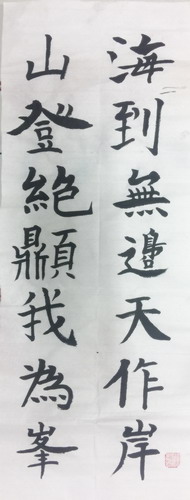 海到無邊天作岸
山登絕顛我為峯